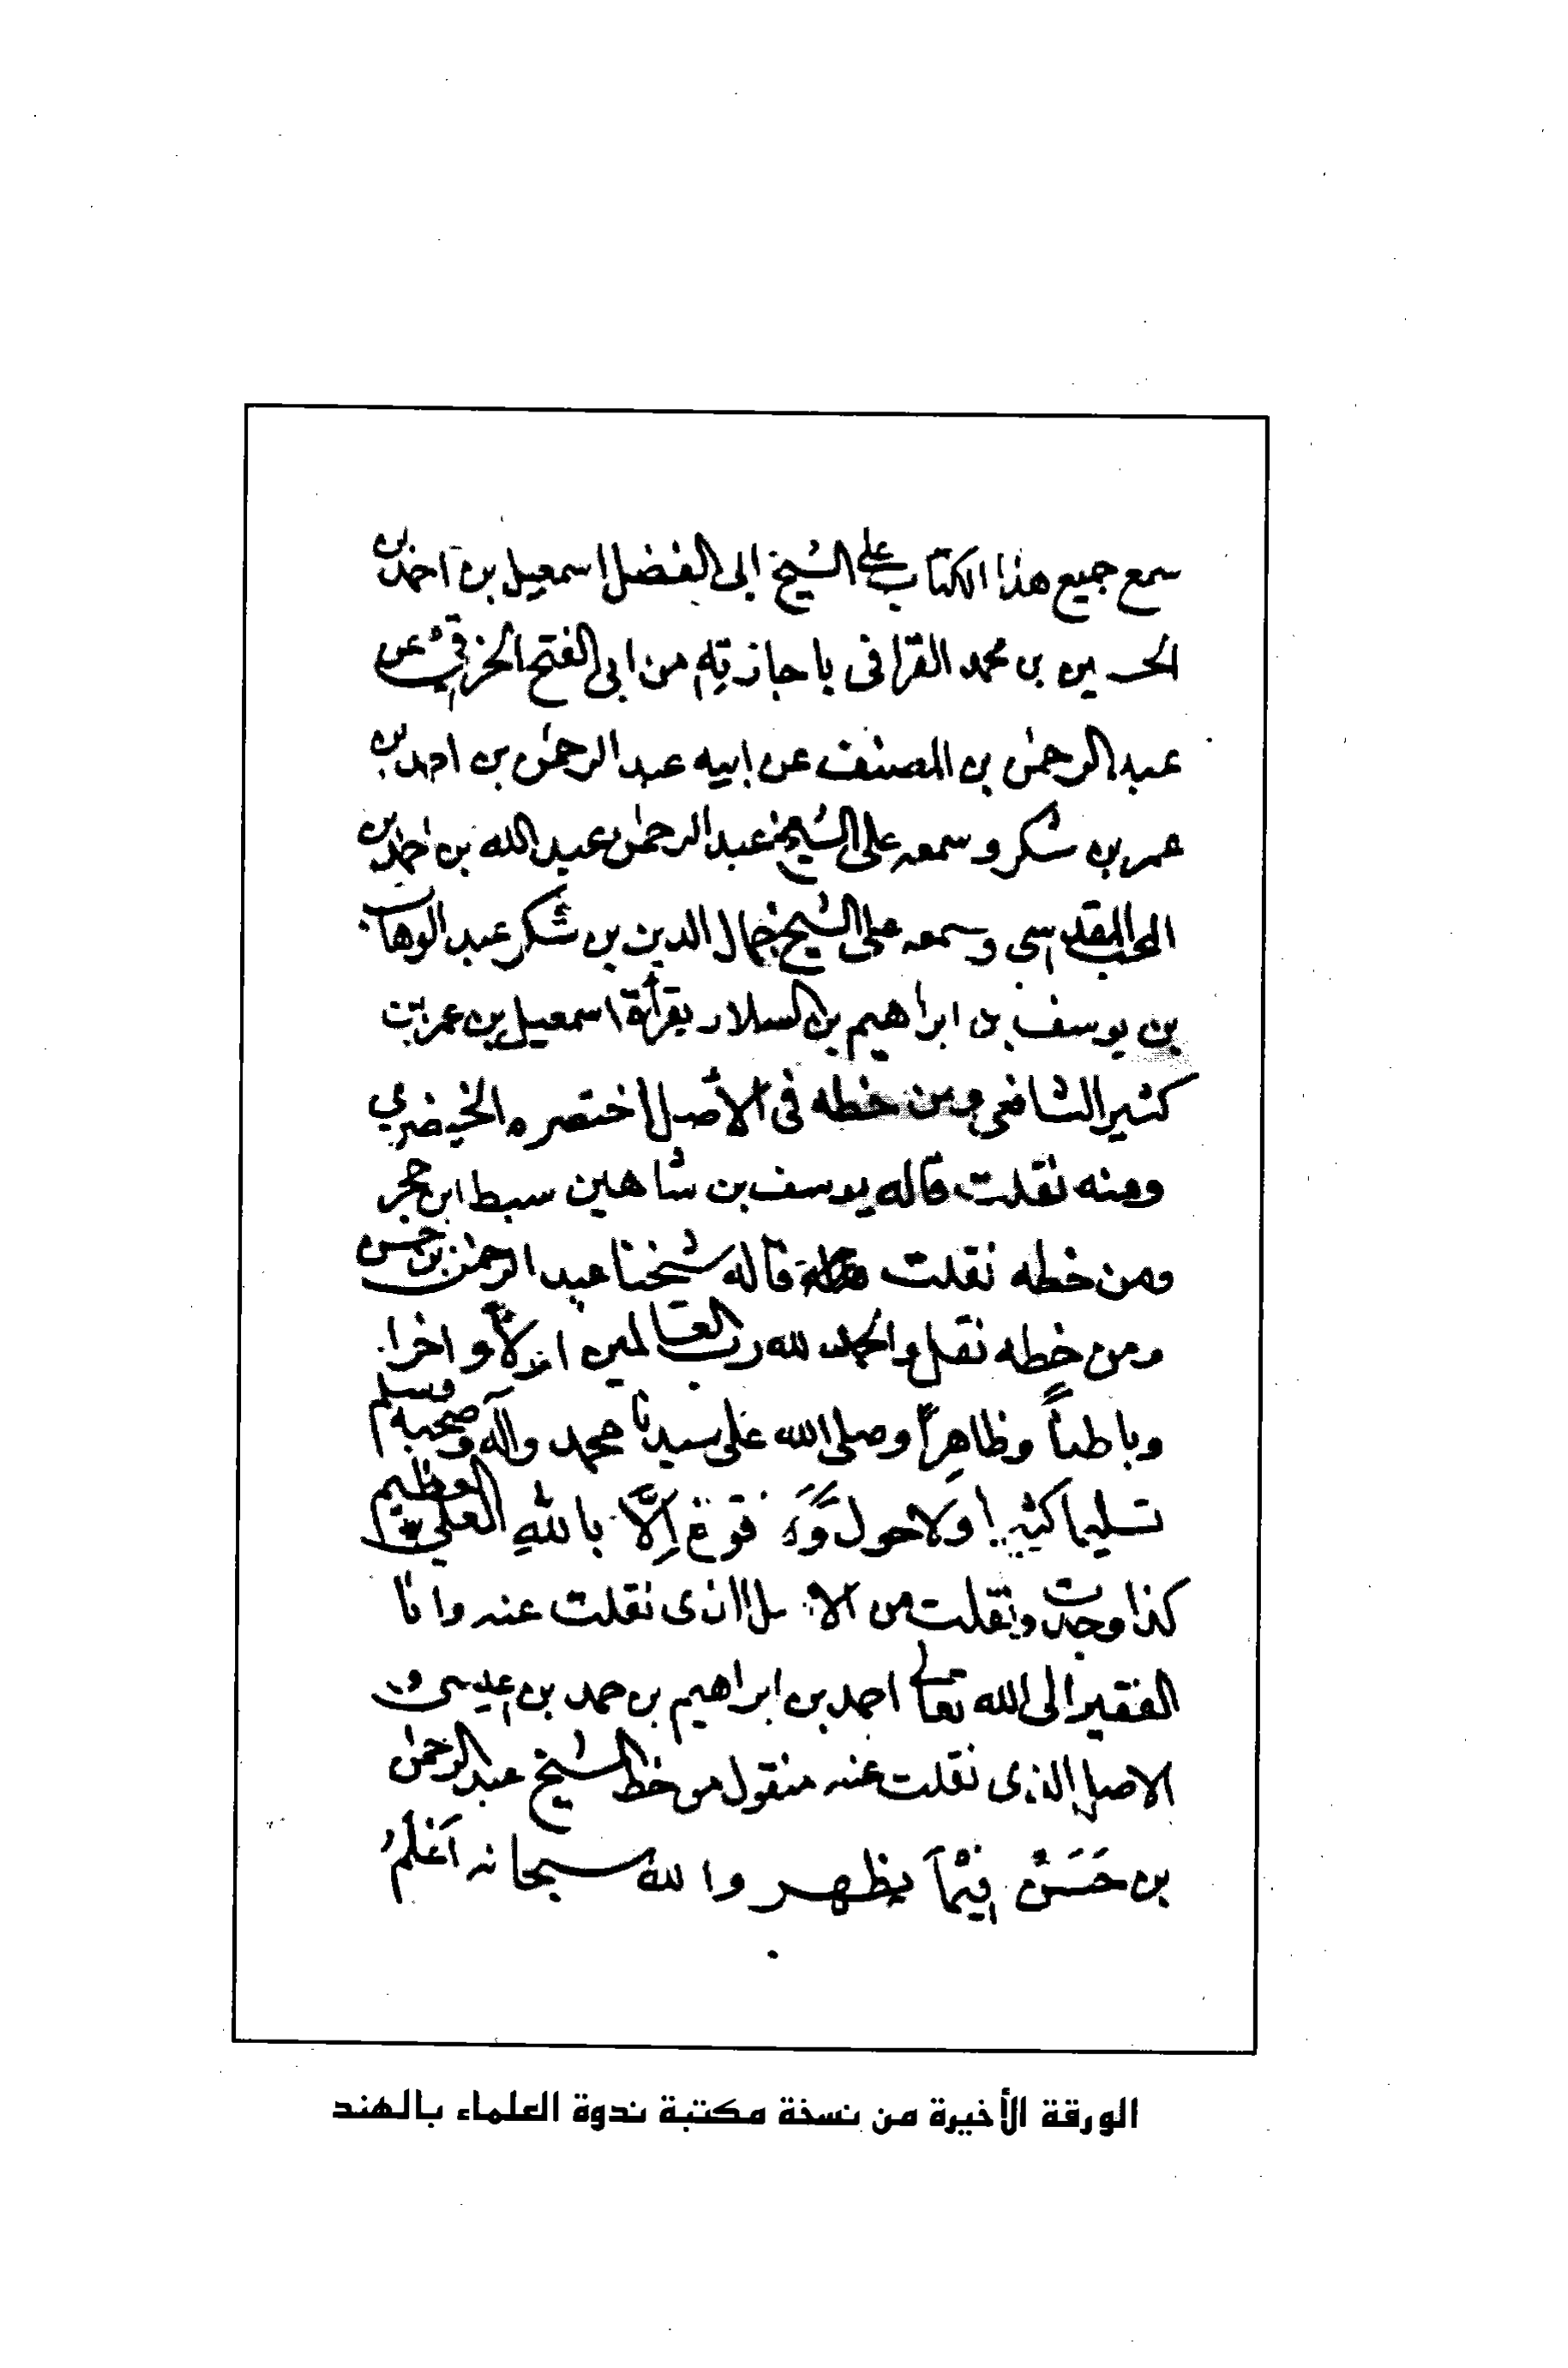 سمع جميع هذا الكتاب على الشيخ ابى الفضل اسمعيل بن احمد بن
الحسين بن محمد القرافى باجازته من ابى الفتح الخرقي عن
عبد الرحمن بن المصنف عن ابيه عبد الرحمن بن احمد بن
عمر بن شكر وسمعه على الشيخ عبد الرحمن عبد الله بن احمد بن
المحب المقدسي وسمعه على الشيخ جمال الدين بن شكر عبد الوهاب
بن يوسف بن ابراهيم بن السلار بقرأة اسمعيل بن عمر بن
كثير الشافعى ومن خطه فى الأصل اختصره الخيضري
ومنه نقلت قاله يوسف بن شاهين سبط ابن حجر
ومن خطه نقلت قاله شيخنا عبد الرحمن بن حسن
ومن خطه نقل والحمد لله رب العالمين اولاً و اخرا
وباطناً وظاهراً وصلى الله على سيدنا محمد وآله وصحبه وسلم
تسليما كثيرا ولا حول وَلَا قوة إِلَّا باللهِ العلي العظيم
كذا وجدت ونقلت من الاصل الذى نقلت عنه وانا
الفقير الى الله تعالى احمد بن ابراهيم بن حمد بن عيسى و
الاصل الذى نقلت عنه منقول من خط الشيخ عبد الرحمن
بن حَسَنْ فِيْمَا يظهر والله سبحانه اَعْلَمُ
الورقة الأخيرة من نسخة مكتبة ندوة العلماء بالهند